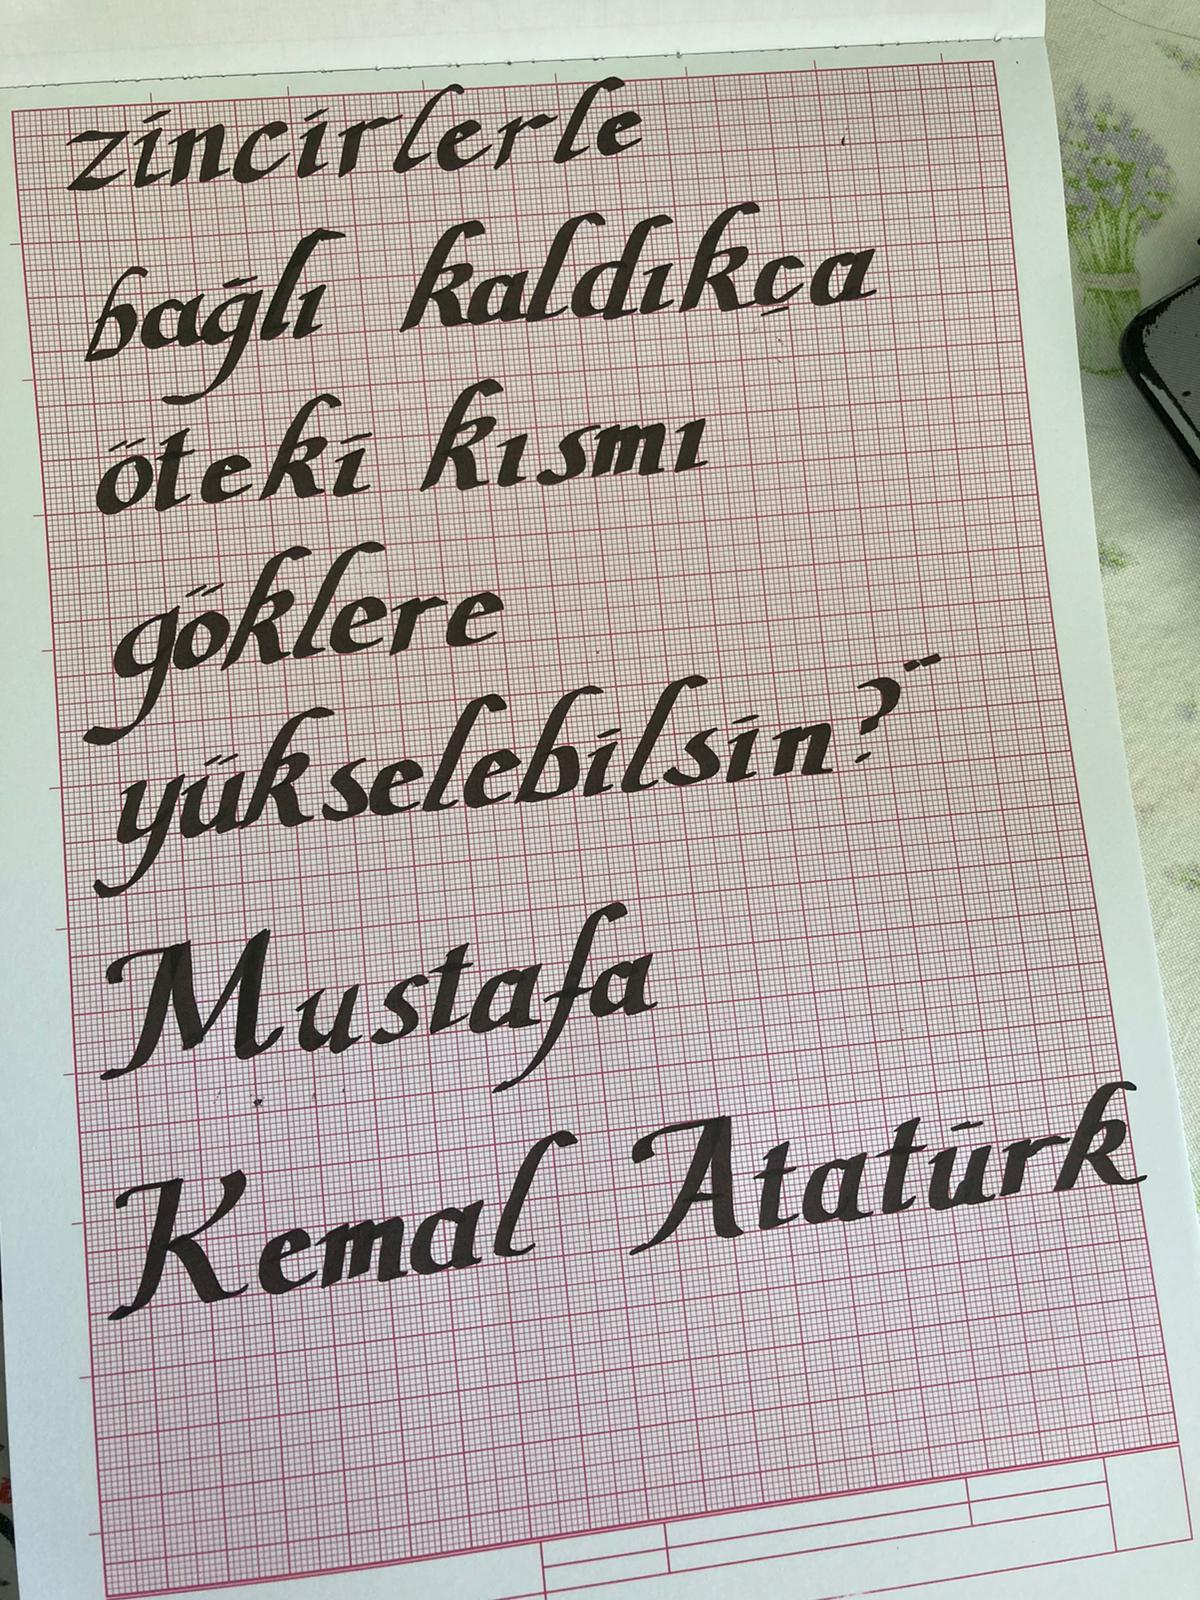 zincirlerle
bağlı kaldıkça
öteki kısmı
göklere
yükselebilsin?"
Mustafa
Kemal Atatürk